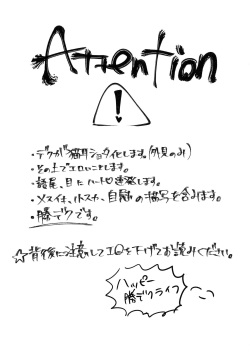 Attention
!
・デクが猫耳ショタ化します。(外見のみ)
・その上でエロいことします。
・語尾、目にハート♡連発します。
・メスイキ、トスカ、自慰の描写を含みます。
・勝デクです。
☆背後に注意してエロを下げてお読みください。
ハッピー
勝デクライフ